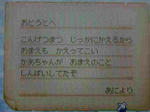 おとうとへ
こんげつまつ じっかにかえるから
おまえも かえってこい
かあちゃんが おまえのこと
しんぱいしてたぞ
あにより